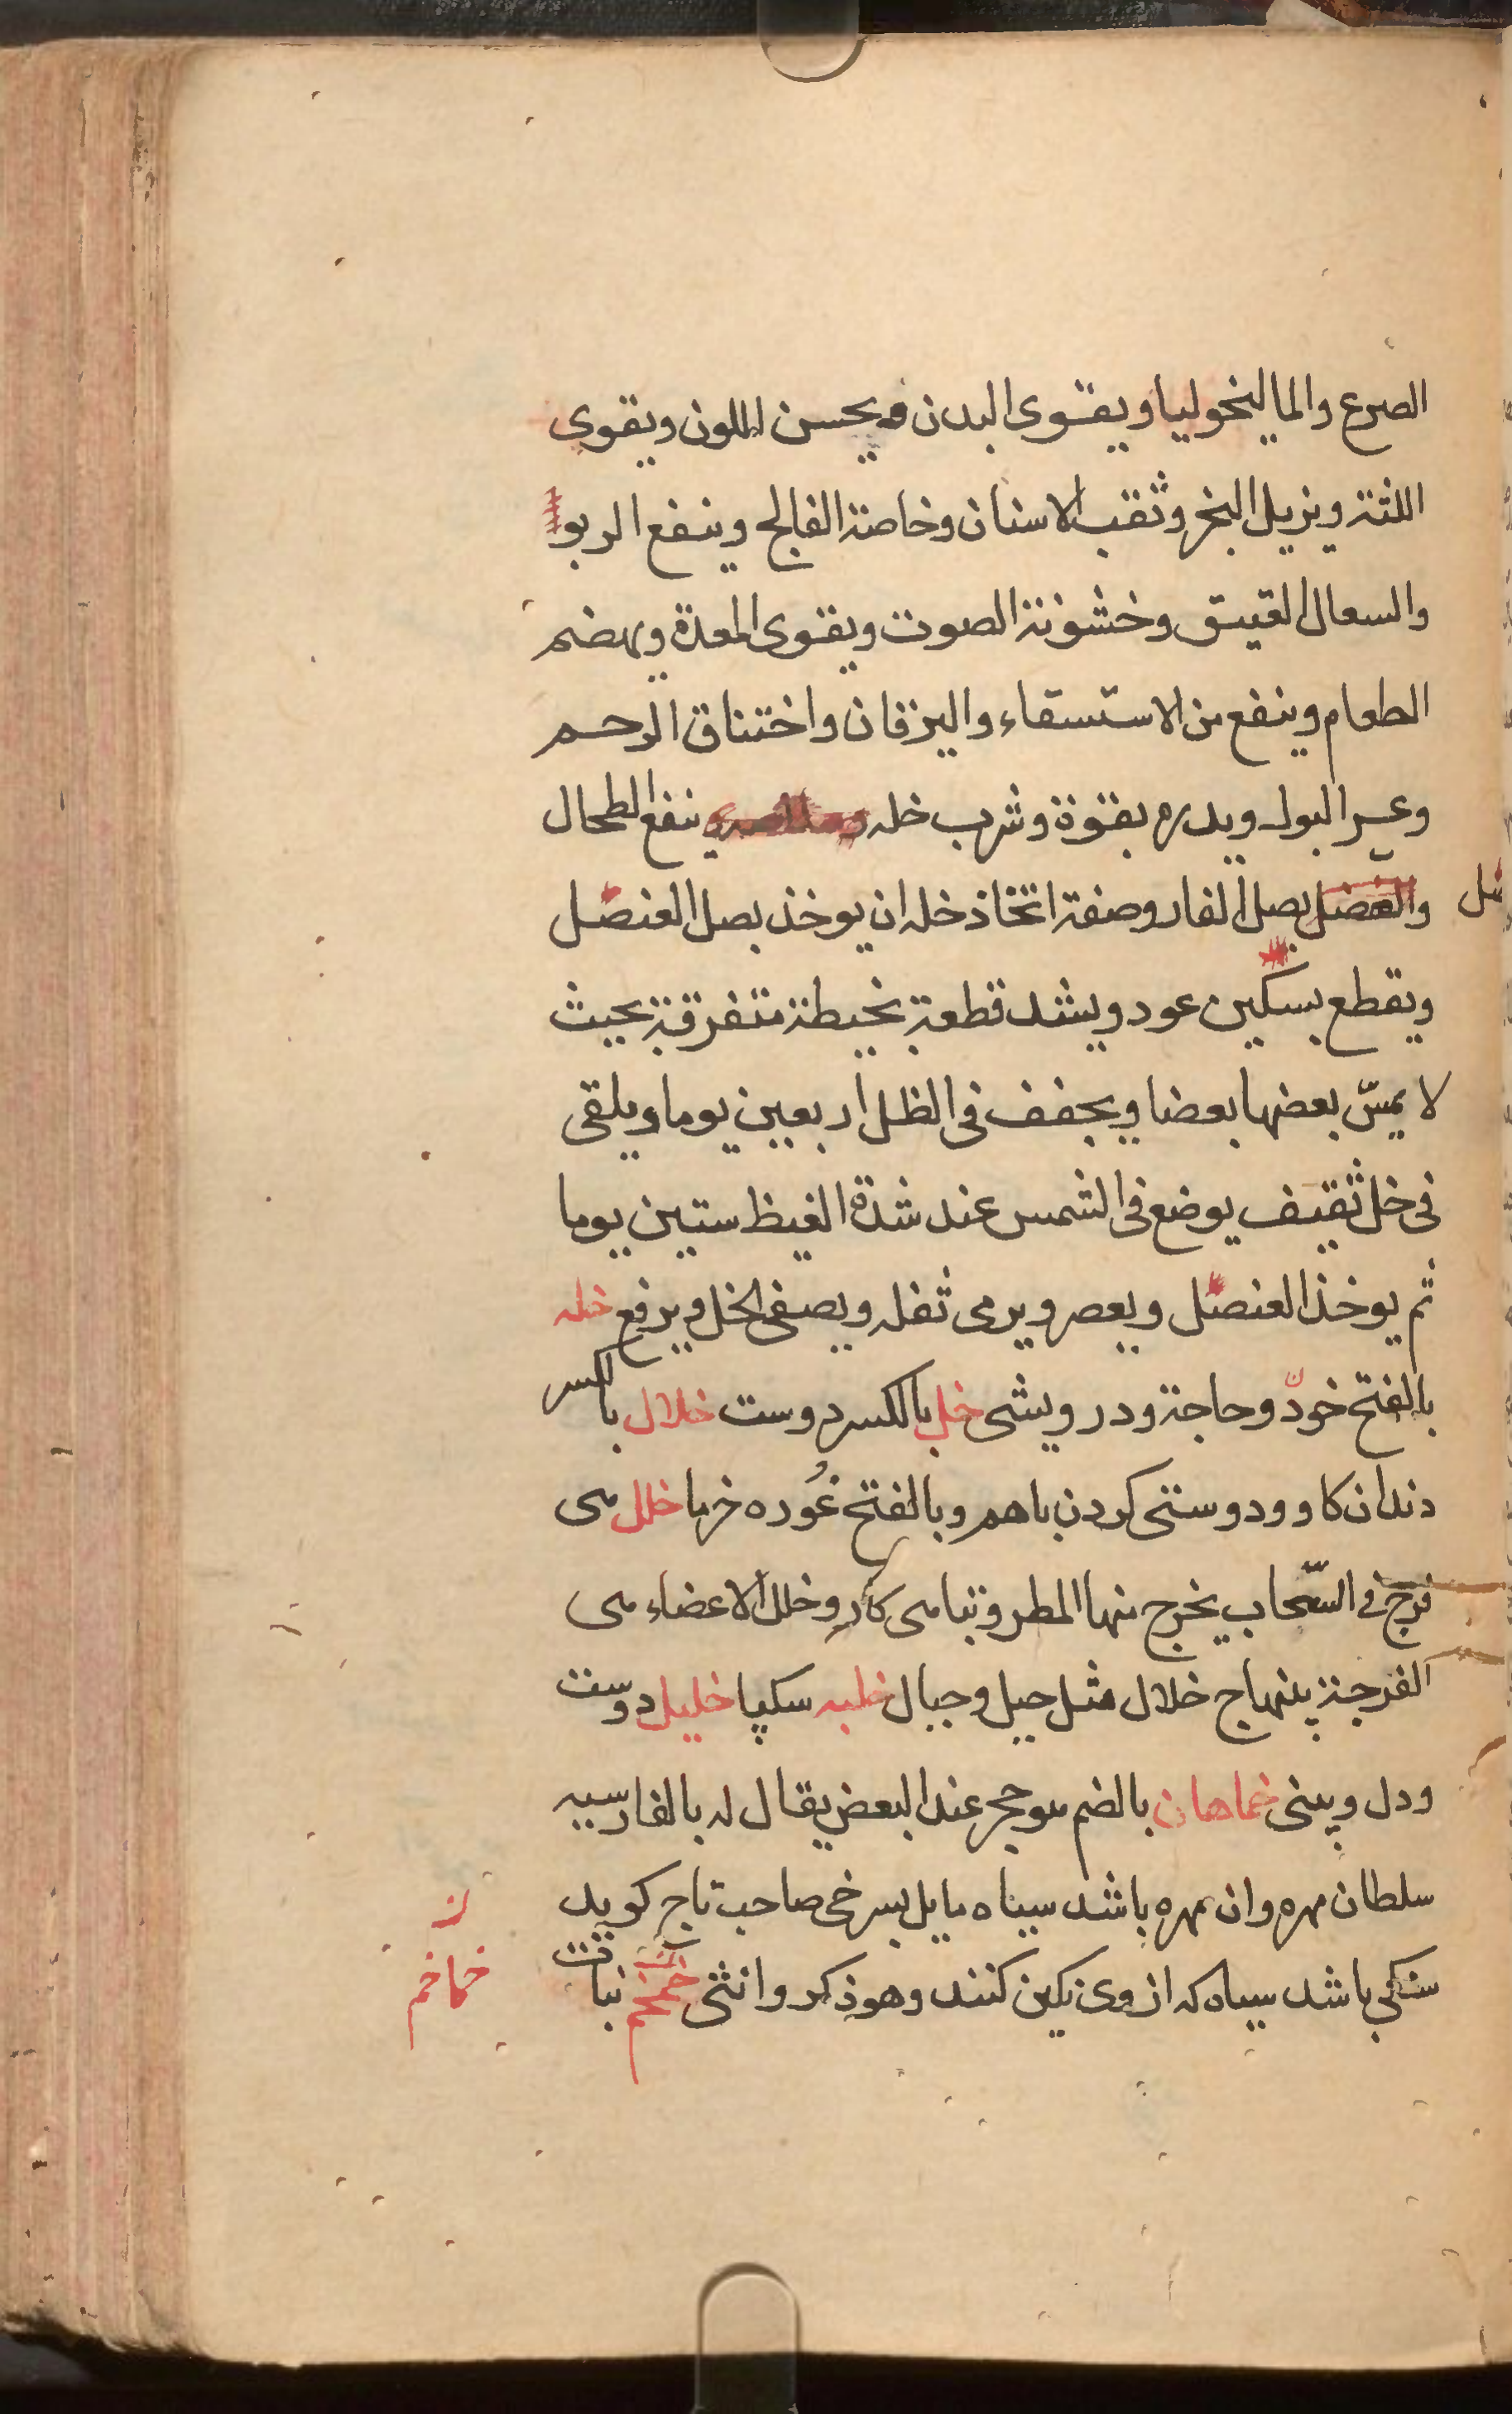 الصرع والماليخوليا ويقوى البدن ويحسن اللون ويقوى
اللثة ويزيل البخر وثقب الاسنان وخاصة الفالج وينفع الربو
والسعال العتيق وخشونة الصوت ويقوى المعدة ويهضم
الطعام وينفع من الاستسقاء واليرقان واختناق الرحم
وعسر البول ويدره بقوة وشرب خله ينفع الطحال
والعنصل بصل الفار وصفة اتخاذ خله ان يوخذ بصل العنصل
ويقطع بسكين عود ويشد قطعة بخيطة متفرقة بحيث
لا يمسّ بعضها بعضا ويجفف فى الظل اربعين يوما ويلقى
فى خل ثقيف يوضع فى الشمس عند شدة الغيظ ستين يوما
ثم يوخذ العنصل ويعصر ويرمى ثفله ويصفى الخل ويرفع خله
بالفتح خودّ وحاجة ودرويشى خل بالكسر دوست خلال بالكسر
دندان كاو ودوستى كردن باهم وبالفتح غُوره خرما خلل مى
فرج فى السّحاب يخرج منها المطر وتبامى كار وخلل الاعضاء مى
الفرجة بينها ج خلال مثل جبل وجبال خلبه سكپا خليل دوست
ودل وبينى خماهان بالضم موحجر عند البعض يقال له بالفارسيه
سلطان مهره وان مهره باشد سياه مايل بسرخى صاحب تاج كويد
سنكى باشد سياه كه از وى نكين كنند وهو ذكر وانثى خمخم نبات
خماخم